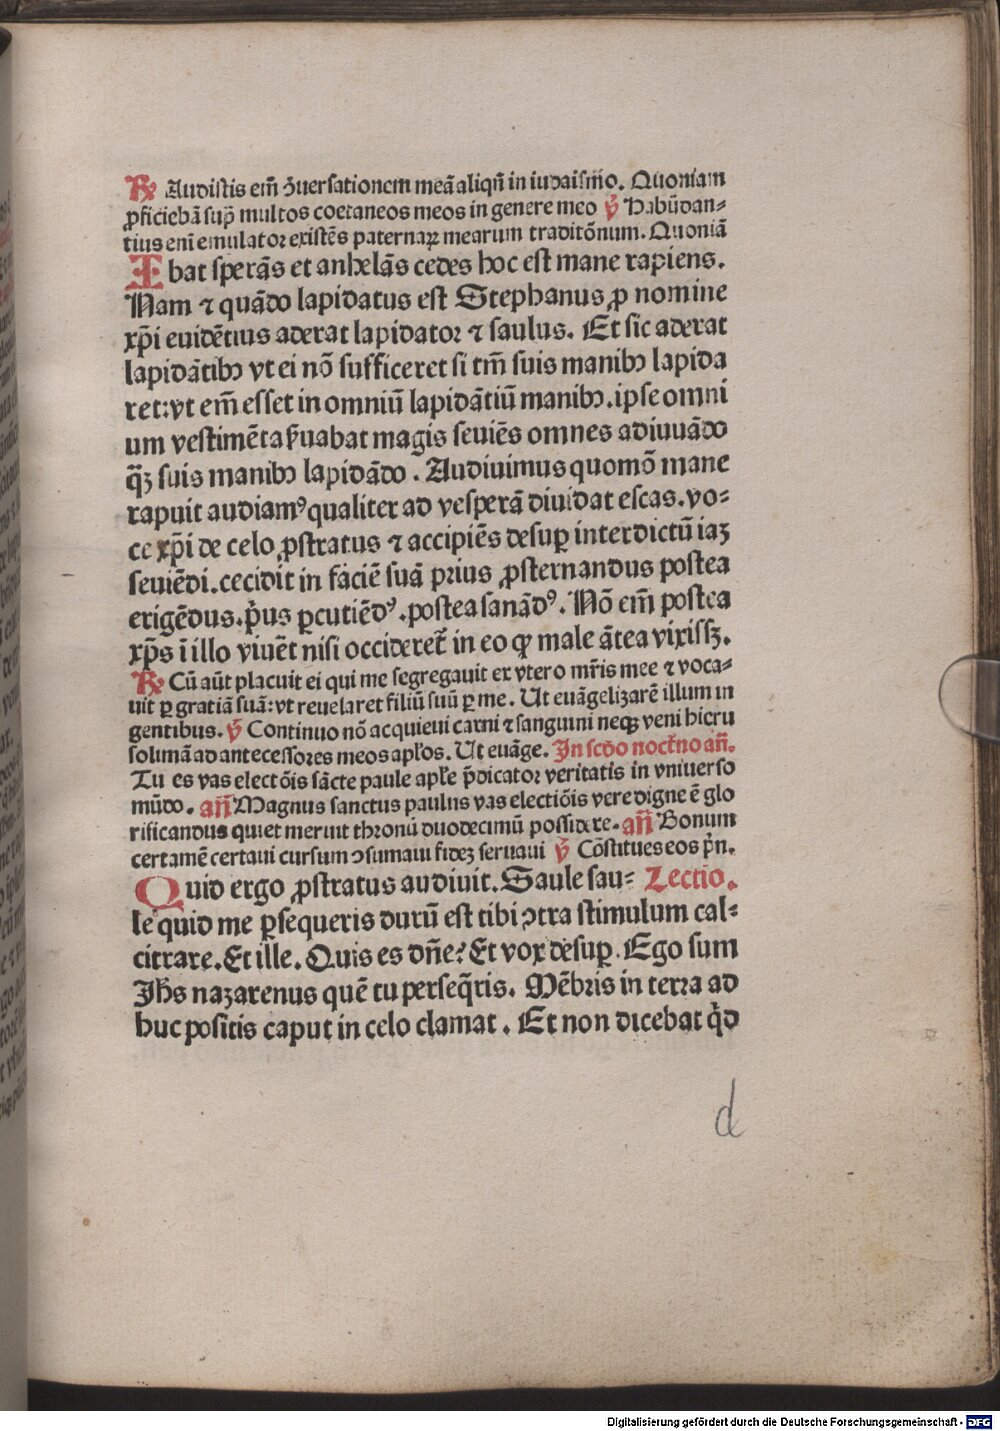 ℟ Audistis em̄ ↄ̄uersationem meā aliqn̄ in iudaismo. Quoniam
ꝓficiebā sup̄ multos coetaneos meos in genere meo ℣ Habūdan⸗
tius eni emulator existēs paternaꝝ mearum traditōnum. Quoniā
Ibat sperās et anhelās cedes hoc est mane rapiens.
Nam ⁊ quādo lapidatus est Stephanus ꝓ nomine
xp̄i euidētius aderat lapidator ⁊ saulus. Et sic aderat
lapidātibꝫ vt ei nō sufficeret si tm̄ suis manibꝫ lapida
ret: vt em̄ esset in omniū lapidātiū manibꝫ. ipse omni
um vestimēta ẜuabat magis seuiēs omnes adiuuādo
q̄ꝫ suis manibꝫ lapidādo. Audiuimus quomō mane
rapuit audiamꝰ qualiter ad vesperā diuidat escas. vo⸗
ce xp̄i de celo ꝓstratus ⁊ accipiēs desuꝑ interdictū iaꝫ
seuiēdi. cecidit in faciē suā prius ꝓsternandus postea
erigēdus. p̄us ꝑcutiēdꝰ. postea sanādꝰ. Nō em̄ postea
xp̄s ī illo viuēt nisi occideret̄ in eo qꝫ male ātea vixissꝫ.
℟ Cū aūt placuit ei qui me segregauit ex vtero mr̄is mee ⁊ voca⸗
uit ꝑ gratiā suā: vt reuelaret filiū suū ꝑ me. Ut euāgelizarē illum in
gentibus. ℣ Continuo nō acquieui carni ⁊ sanguini neqꝫ veni hieru
solimā ad antecessores meos apl̄os. Ut euāge. In scd̄o noct̄no an̄.
Tu es vas electōis sācte paule apl̄e p̄dicator veritatis in vniuerso
mūdo. an̄ Magnus sanctus paulus vas electiōis vere digne ē glo
rificandus qui et meruit thronū duodecimū possidere. an̄ Bonum
certamē certaui cursum ↄsumaui fideꝫ seruaui ℣ Cōstitues eos p̄n.
Quid ergo ꝓstratus audiuit. Saule sau⸗ Lectio.
le quid me ꝑsequeris durū est tibi ↄtra stimulum cal⸗
citrare. Et ille. Quis es dn̄e? Et vox desuꝑ. Ego sum
Jhs̄ nazarenus quē tu perseq̄ris. Mēbris in terra ad
huc positis caput in celo clamat. Et non dicebat qd̄
d
Digitalisierung gefördert durch die Deutsche Forschungsgemeinschaft - DFG